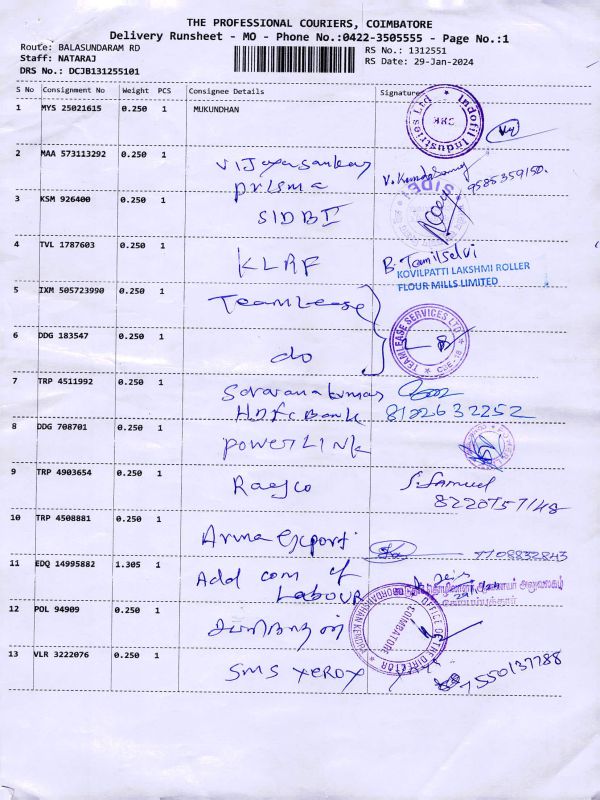 THE PROFESSIONAL COURIERS, COIMBATORE
Delivery Runsheet - MO - Phone No.:0422-3505555 - Page No.:1
Route: BALASUNDARAM RD
Staff: NATARAJ
DRS No.: DCJB131255101
RS No.: 1312551
RS Date: 29-Jan-2024
S No Consignment No Weight PCS Consignee Details Signature
1 MYS 25021615 0.250 1 MUKUNDHAN
Indofil Industries Ltd
CBE
2 MAA 573113292 0.250 1
Vijayasankar
prisma
9585359150.
3 KSM 926400 0.250 1
SIDBI
4 TVL 1787603 0.250 1
KLRF
B. Tamilselvi
KOVILPATTI LAKSHMI ROLLER
FLOUR MILLS LIMITED
5 IXM 505723990 0.250 1
TeamLease
TEAM LEASE SERVICES LTD
CBE-18
6 DDG 183547 0.250 1
do
7 TRP 4511992 0.250 1
Saravanakumar
HDFC Bank
8122632252
8 DDG 708701 0.250 1
POWERLINK
9 TRP 4903654 0.250 1
S. Samuel
10 TRP 4508881 0.250 1
Export
7708832843
11 EDQ 14995882 1.305 1
Add com of
Labour
12 POL 94909 0.250 1
OFFICE OF THE DIRECTOR
COIMBATORE
13 VLR 3222076 0.250 1
SMS XEROX
7550137788